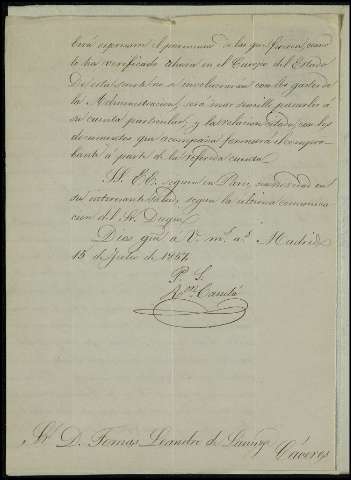 berá espresarse el pormenor de los que fueren, como
lo ha verificado ahora en el Cuerpo del Estado
De esta suerte no se involucrarán con los gastos de
la Administracion, será mas sencillo pasarlos á
su cuenta particular, y la relacion citada con los
documentos que acompaña formará el compro-
bante á parte de la referida cuenta.
SS. EE. siguen en Paris, sin novedad en
su interesante salud, segun la ultima comunica-
cion del Sr. Duque
Dios gue. á V. ms. as. Madrid
15 de Julio de 1857.
P. S.
Sr. D. Tomas de
Cáceres